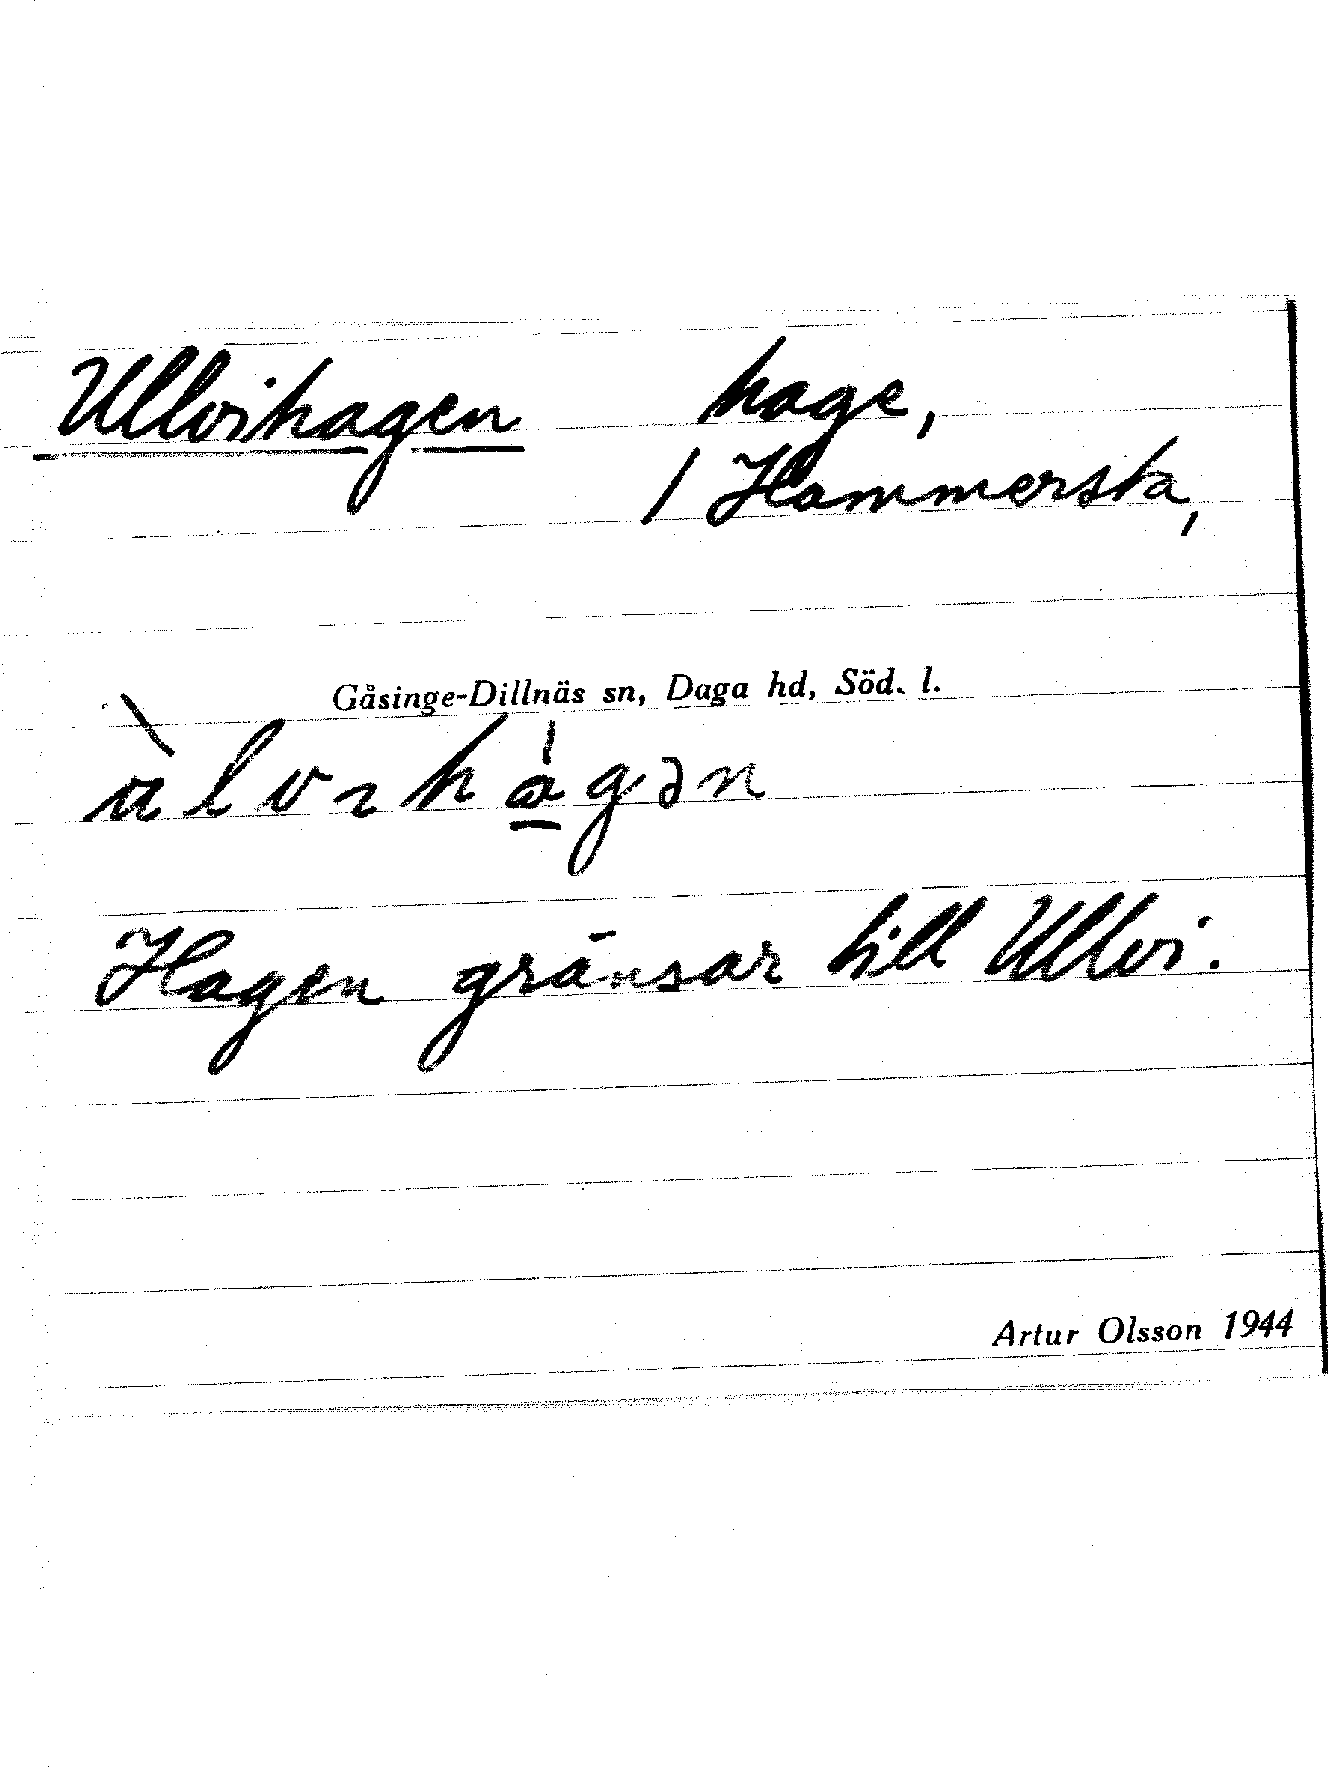 Ullvihagen hage,
/ Hammersta,
Gåsinge-Dillnäs sn, Daga hd, Söd. l.
Hagen gränsar till Ullvi.
Artur Olsson 1944